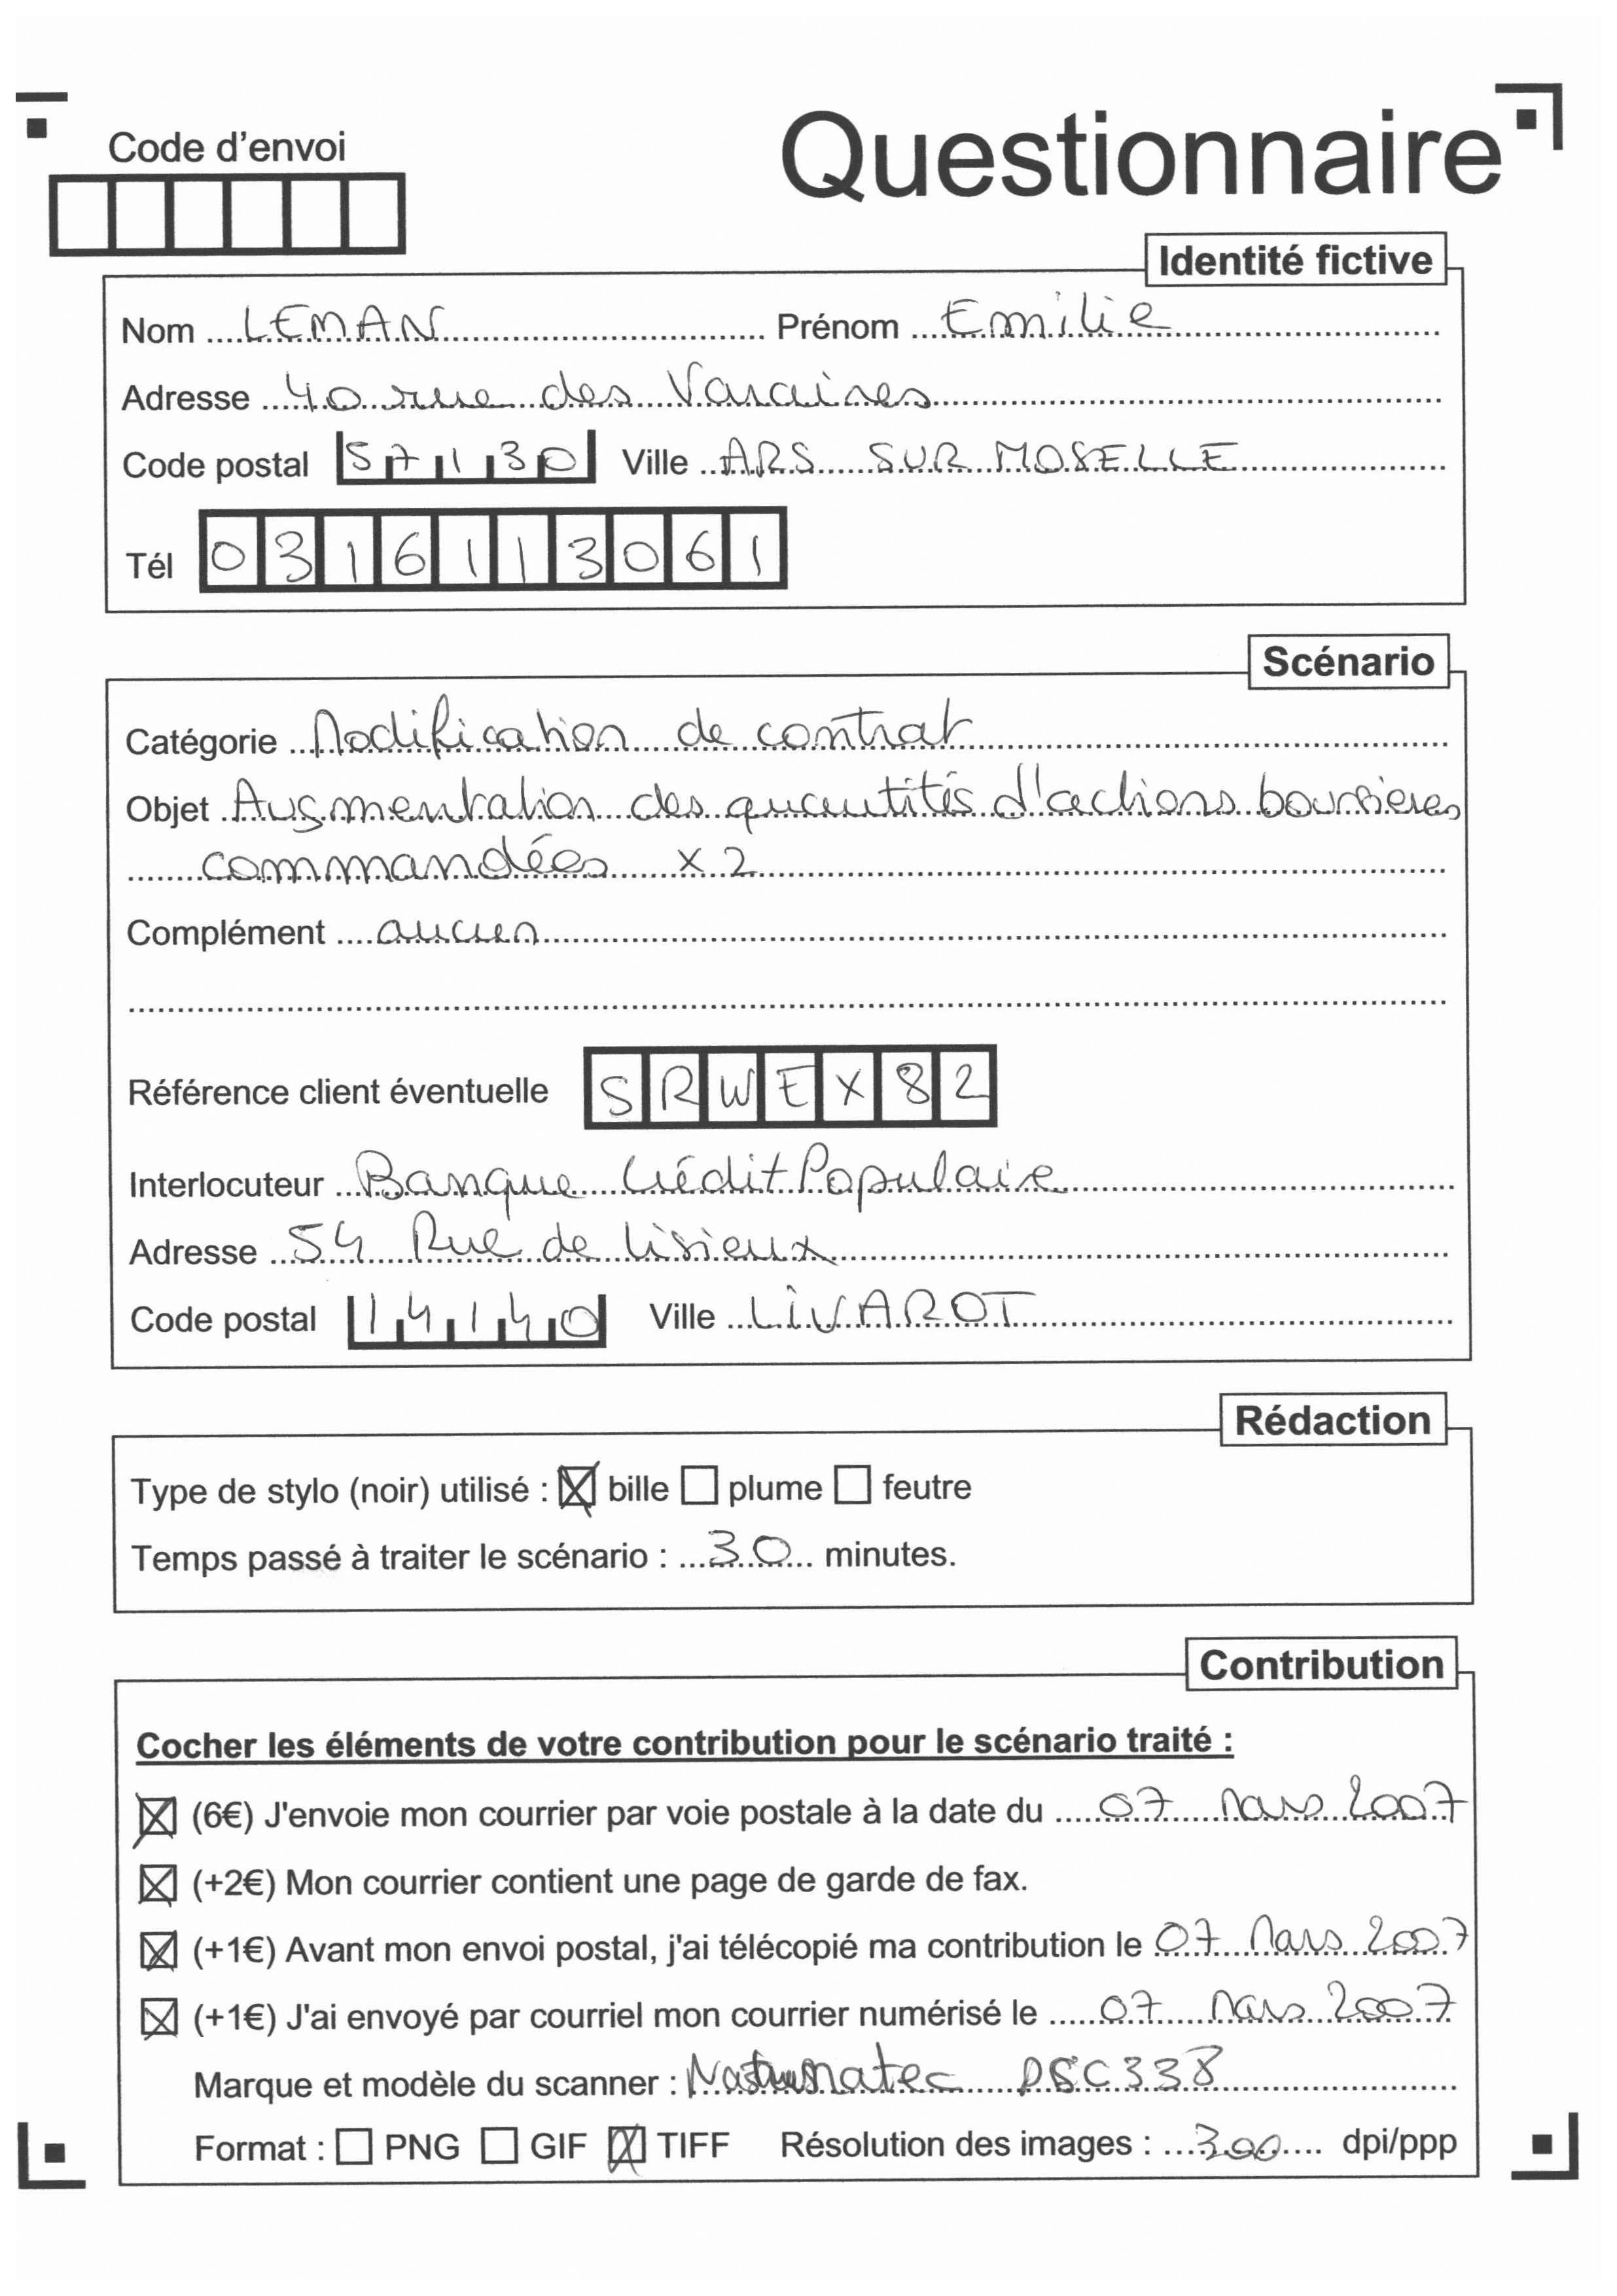 Code d'envoi
Questionnaire
Identité fictive
Nom LEMAN Prénom Emilie
Adresse 40 rue des Varaines
Code postal 57130 Ville ARS SUR MOSELLE
Tél 0316113061
Scénario
Catégorie Modification de contrat
Objet Augmentation des quantités d'actions boursieres
commandées x 2
Complément aucun
Référence client éventuelle SRWEX82
Interlocuteur Banque Crédit Populaire
Adresse 54 Rue de Lisieux
Code postal 14140 Ville LIVAROT
Rédaction
Type de stylo (noir) utilisé : bille plume feutre
Temps passé à traiter le scénario : 30 minutes.
Contribution
Cocher les éléments de votre contribution pour le scénario traité :
(6€) J'envoie mon courrier par voie postale à la date du 07 Mars 2007
(+2€) Mon courrier contient une page de garde de fax.
(+1€) Avant mon envoi postal, j'ai télécopié ma contribution le 07 Mars 2007
(+1€) J'ai envoyé par courriel mon courrier numérisé le 07 Mars 2007
Marque et modèle du scanner : DSC338
Format : PNG GIF TIFF Résolution des images : 300 dpi/ppp